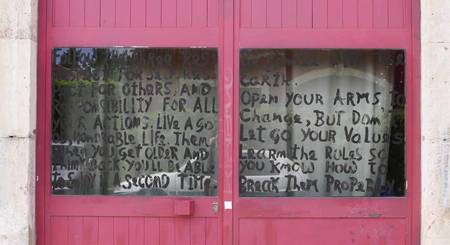 FOR SELF, RES
ECT FOR OTHERS, AND
ONSIBILITY FOR ALL
R ACTIONS. LIVE A GO
HONORABLE LIFE. THEN
YOU GET OLDER AND
THINK BACK, YOU'LL BE ABLE
SECOND TIME.
EARTH.
OPEN YOUR ARMS TO
CHANGE, BUT DON
LET GO YOUR VALUES
LEARN THE RULES SO
YOU KNOW HOW TO
BREAK THEM PROPER